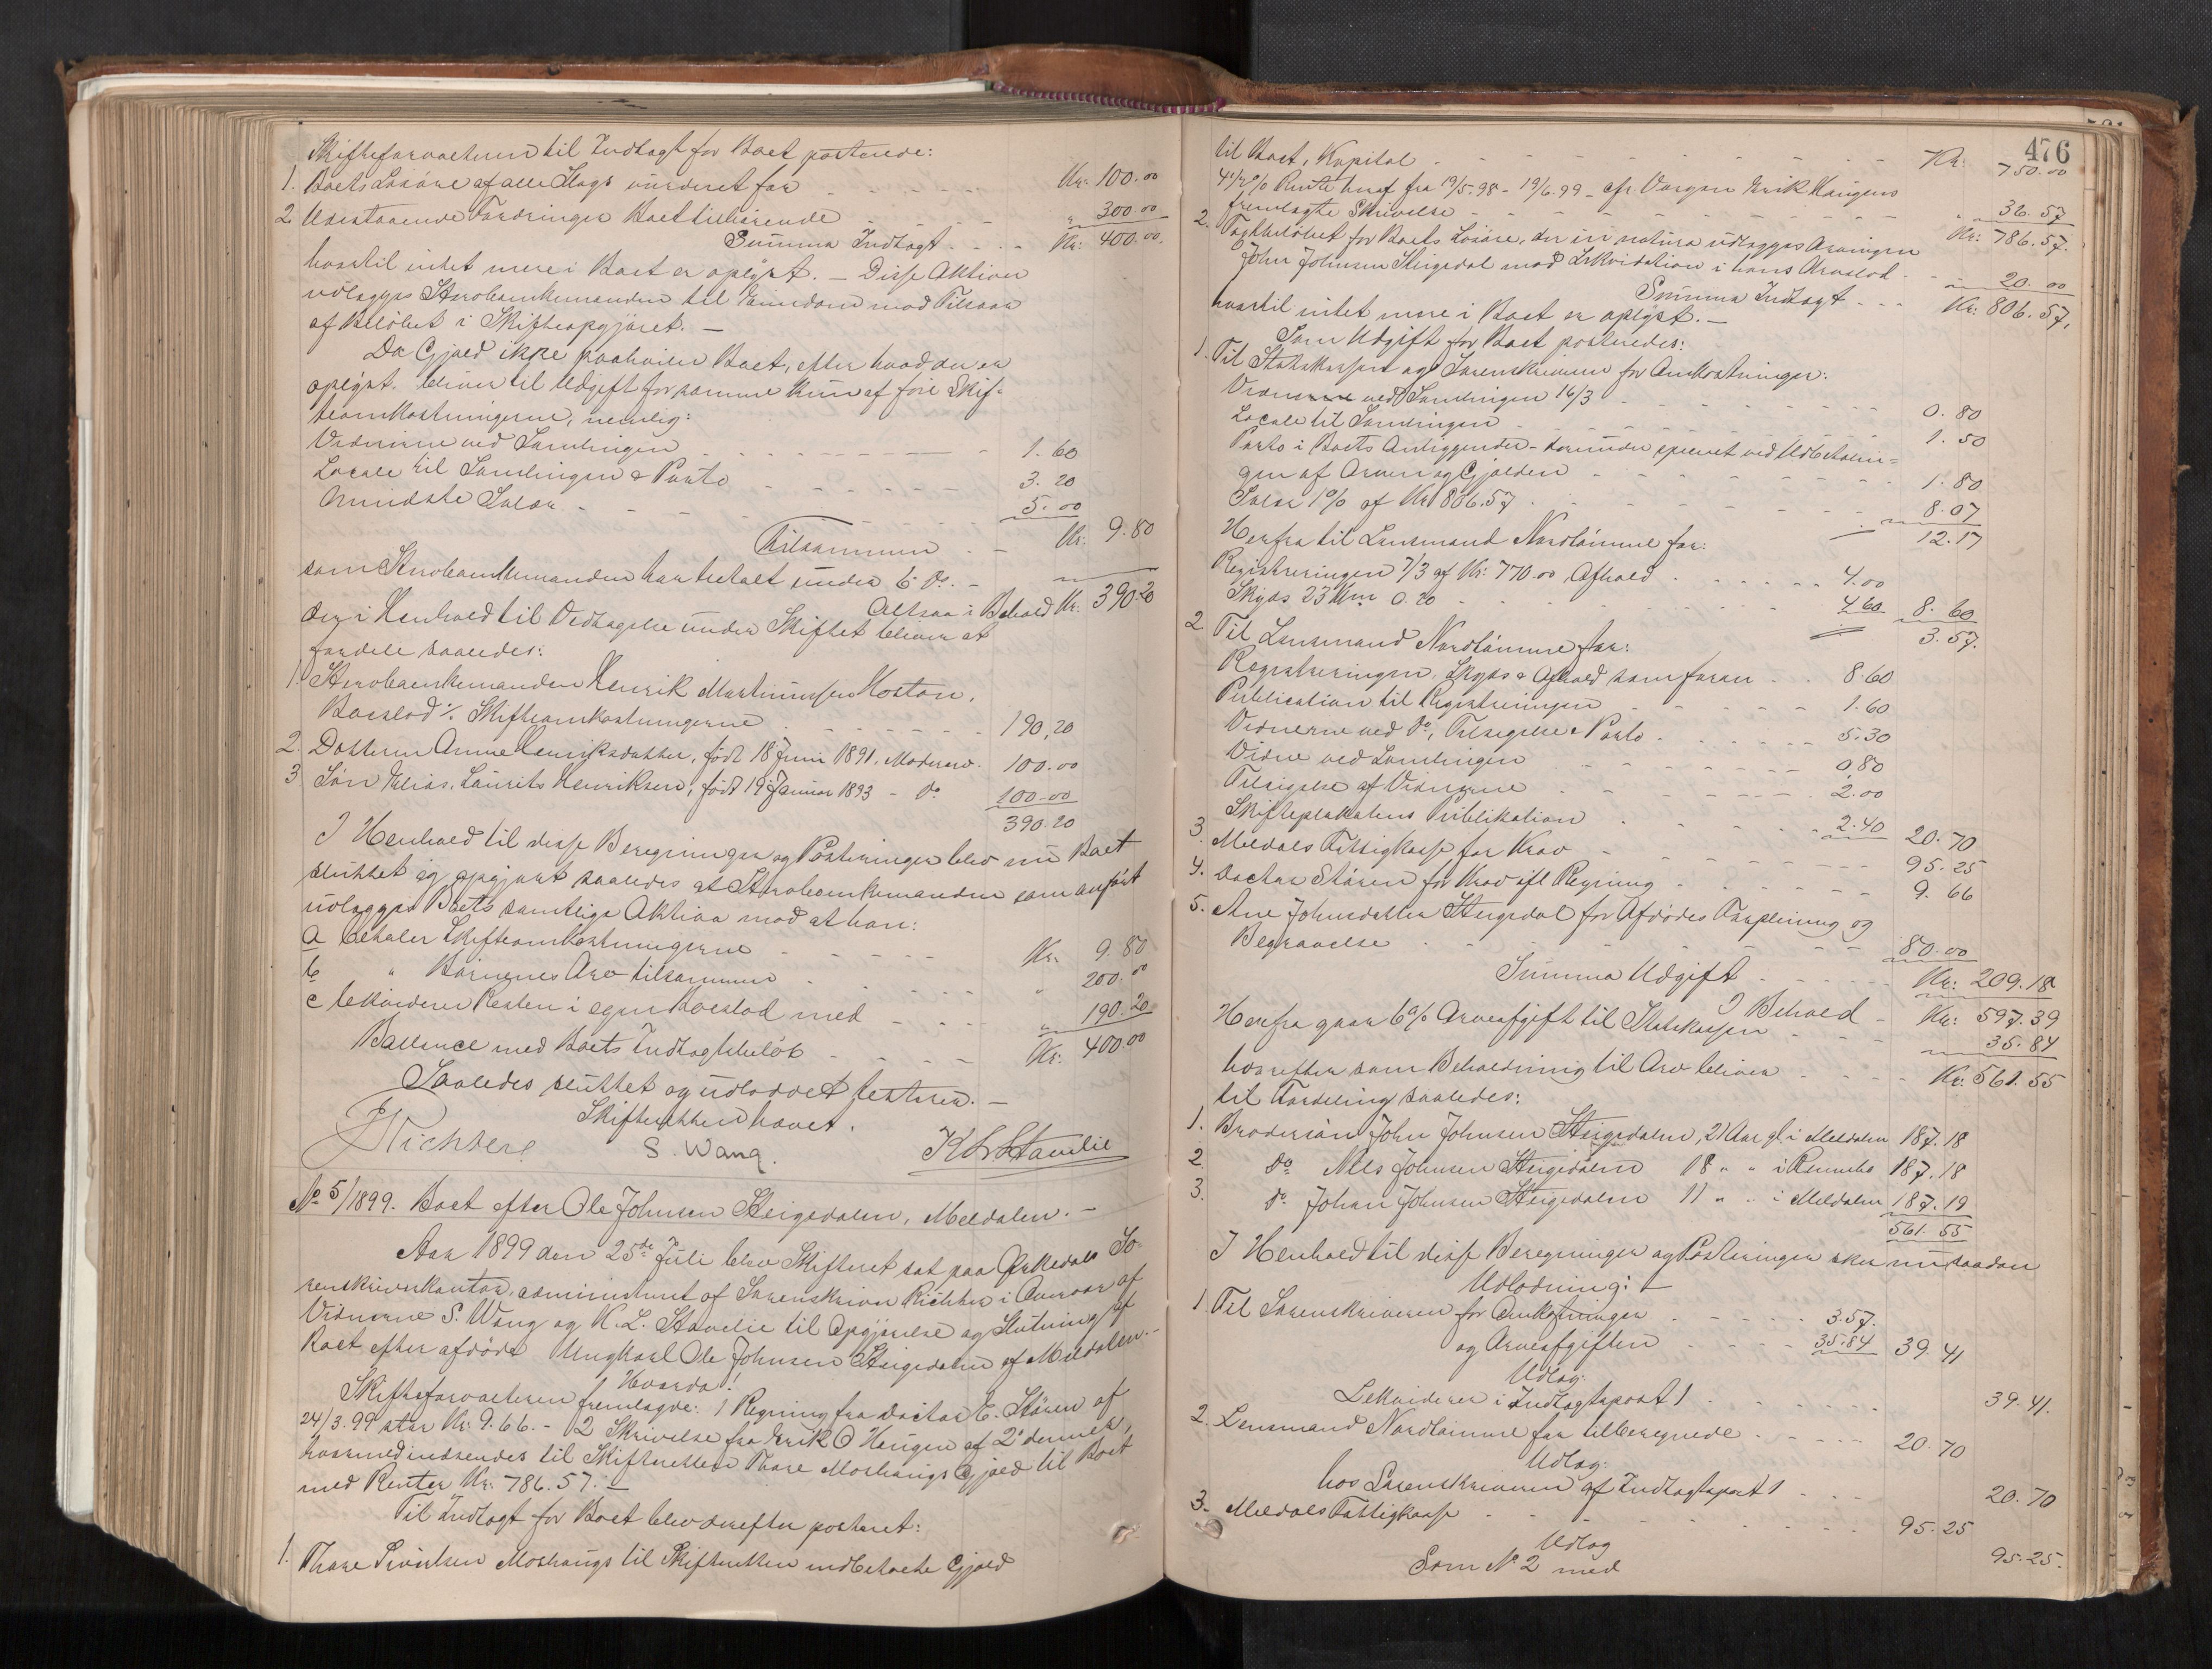 Skifteforvalteren til Indtægt for Boet posterede:
1. Boets Løsøre af alle Slags vurderet for Kr. 100.00
2. Udestaaende Fordringer Boet tilhørende " 300.00
Summa Indtægt Kr. 400.00.
hvortil intet mere i Boet er oplyst. — Disse Aktiva
udlægges Sterbeenkemanden til Eiendom mod Tilsvar
af Beløbet i Skifteopgjøret. —
Da Gjæld ikke paahviler Boet, efter hvad der er
oplyst, bliver til Udgift for samme kun at føre Skif-
teomkostningerne, nemlig:
Vidnerne ved Samlingen 1.60
Locale til Samlingen & Porto 3.20
Mindste Salær 5.00
Tilsammen Kr. 9.80
som Sterbeenkemanden har betalt under 6 Ds. —
Altsaa i Behold Kr. 390.20
der i Henhold til Vedtagelse under Skiftet bliver at
fordele saaledes:
1. Sterbeenkemanden Henrik Martinussen
Boeslod ./. Skifteomkostningerne 190,20
2. Datteren Anne Henriksdatter, født 18 Juni 1891. Moderarv. 100.00
3 Søn Elias Laurits Henriksen, født 19 Januar 1893 - Do 100.00
390.20
I Henhold til disse Beregninger og Posteringer blev nu Boet
sluttet og opgjort saaledes at Sterbeenkemanden som anført
udlægges Boets samtlige Aktiva mod at han:
a betaler Skifteomkostningerne Kr. 9.80
b " Børnenes Arv tilsammen " 200.00
c lekviderer Resten i egen Boeslod med " 190.20
Ballance med Boets Indtægtsbeløb Kr. 400.00
Saaledes sluttet og udloddet testerer. —
Skifteretten hævet.
Richter S. Wang. K L Stavelie
No 5/1899. Boet efter Ole Johnsen Steigedalen, Meldalen. —
Aar 1899 den 25de Juli blev Skifteret sat paa Orkedals So-
renskriverkontor, administreret af Sorenskriver Richter i Overvær af
Vidnerne S. Wang og K. L. Stavelie til Opgjørelse og Slutning af
Boet efter afdøde Ungkarl Ole Johnsen Steigedalen af Meldalen. —
Hvorda!
Skifteforvalteren fremlagde: 1 Regning fra Doctor E. Støren af
24/3.99 stor Kr. 9.66. - 2 Skrivelse fra Erik O Haugen af 2 dennes,
hvormed indsendes til Skifteretten Thore Moshaugs Gjæld til Boet
med Renter Kr. 786.57. —
Til Indtægt for Boet blev derefter posteret:
1. Thore Sivertsen Moshaugs til Skifteretten indbetalte Gjæld
476
til Boet, Kapital Kr. 750.00
4 1/2 % Rente heraf fra 19/5.98 - 19/6.99 - cfr Værgen Erik Haugens
fremlagte Skrivelse " 36.57
Kr: 786.57.
2. Taxtbeløbet for Boets Løsøre, der in natura udlægges Arvingen
John Johnsen Steigedal mod Lekvidation i hans Arvelod 20.00
Summa Indtægt Kr: 806.57.
hvortil intet mere i Boet er oplyst. —
Som Udgift for Boet posteredes:
1. Til Statskassen og Sorenskriveren for Omkostninger:
Vidne ved Samlingen 16/3 0.80
Locale til Samlingen 1.50
Porto i Boets Anliggender - derunder sparet ved Udbetalin-
gen af Arven og Gjælden 1.80
Salær 1% af Kr. 806.57 8.07
12.17
Herfra til Lensmand Nordtømme for:
Registreringen 7/3 af Kr. 770.00 Afhold 4.00
Skyds 23 Km 0.20 4.60 8.60
3.57.
2 Til Lensmand Nordtømme for:
Registreringen, Skyds & Afhold som foran 8.60
Publication til Registreringen 1.60
Vidnerne ved Do, Tilsigelse & Porto 5.30
Vidne ved Samlingen 0,80
Tilsigelse af Vidnerne 2.00
Skifteplakatens Publikation 2.40 20.70
3. Meldals Fattigkasse for Krav 95.25
4. Doctor Støren for Krav ifl Regning 9.66
5. Ane Johnsdatter Steigedal for Afdødes Forpleining og
Begravelse 80.00
Summa Udgift Kr: 209.18
I Behold Kr: 597.39
Herfra gaar 6% Arveafgift til Statskassen 35.84
hvorefter som Beholdning til Arv bliver Kr: 561.55
til Fordeling saaledes:
1. Brodersøn John Johnsen Steigedalen, 21 Aar gl. i Meldalen 187.18
2. Do Nils Johnsen Steigedalen 18 " " i Rennebo 187.18
3. Do Johan Johnsen Steigedalen 11 " " i Meldalen 187.19
561.55
I Henhold til disse Beregninger og Posteringer sker nu saadan
Udlodning: —
1. Til Sorenskriveren for Omkostninger 3.57.
og Arveafgiften 35.84 39.41
Udlæg:
Lekviderer i Indtægtspost 1 39.41.
2. Lensmand Nordtømme for tilberegnede 20.70
Udlæg:
hos Sorenskriveren af Indtægtspost 1 20.70
3. Meldals Fattigkasse 95.25
Udlæg
Som No 2 med 95.25.